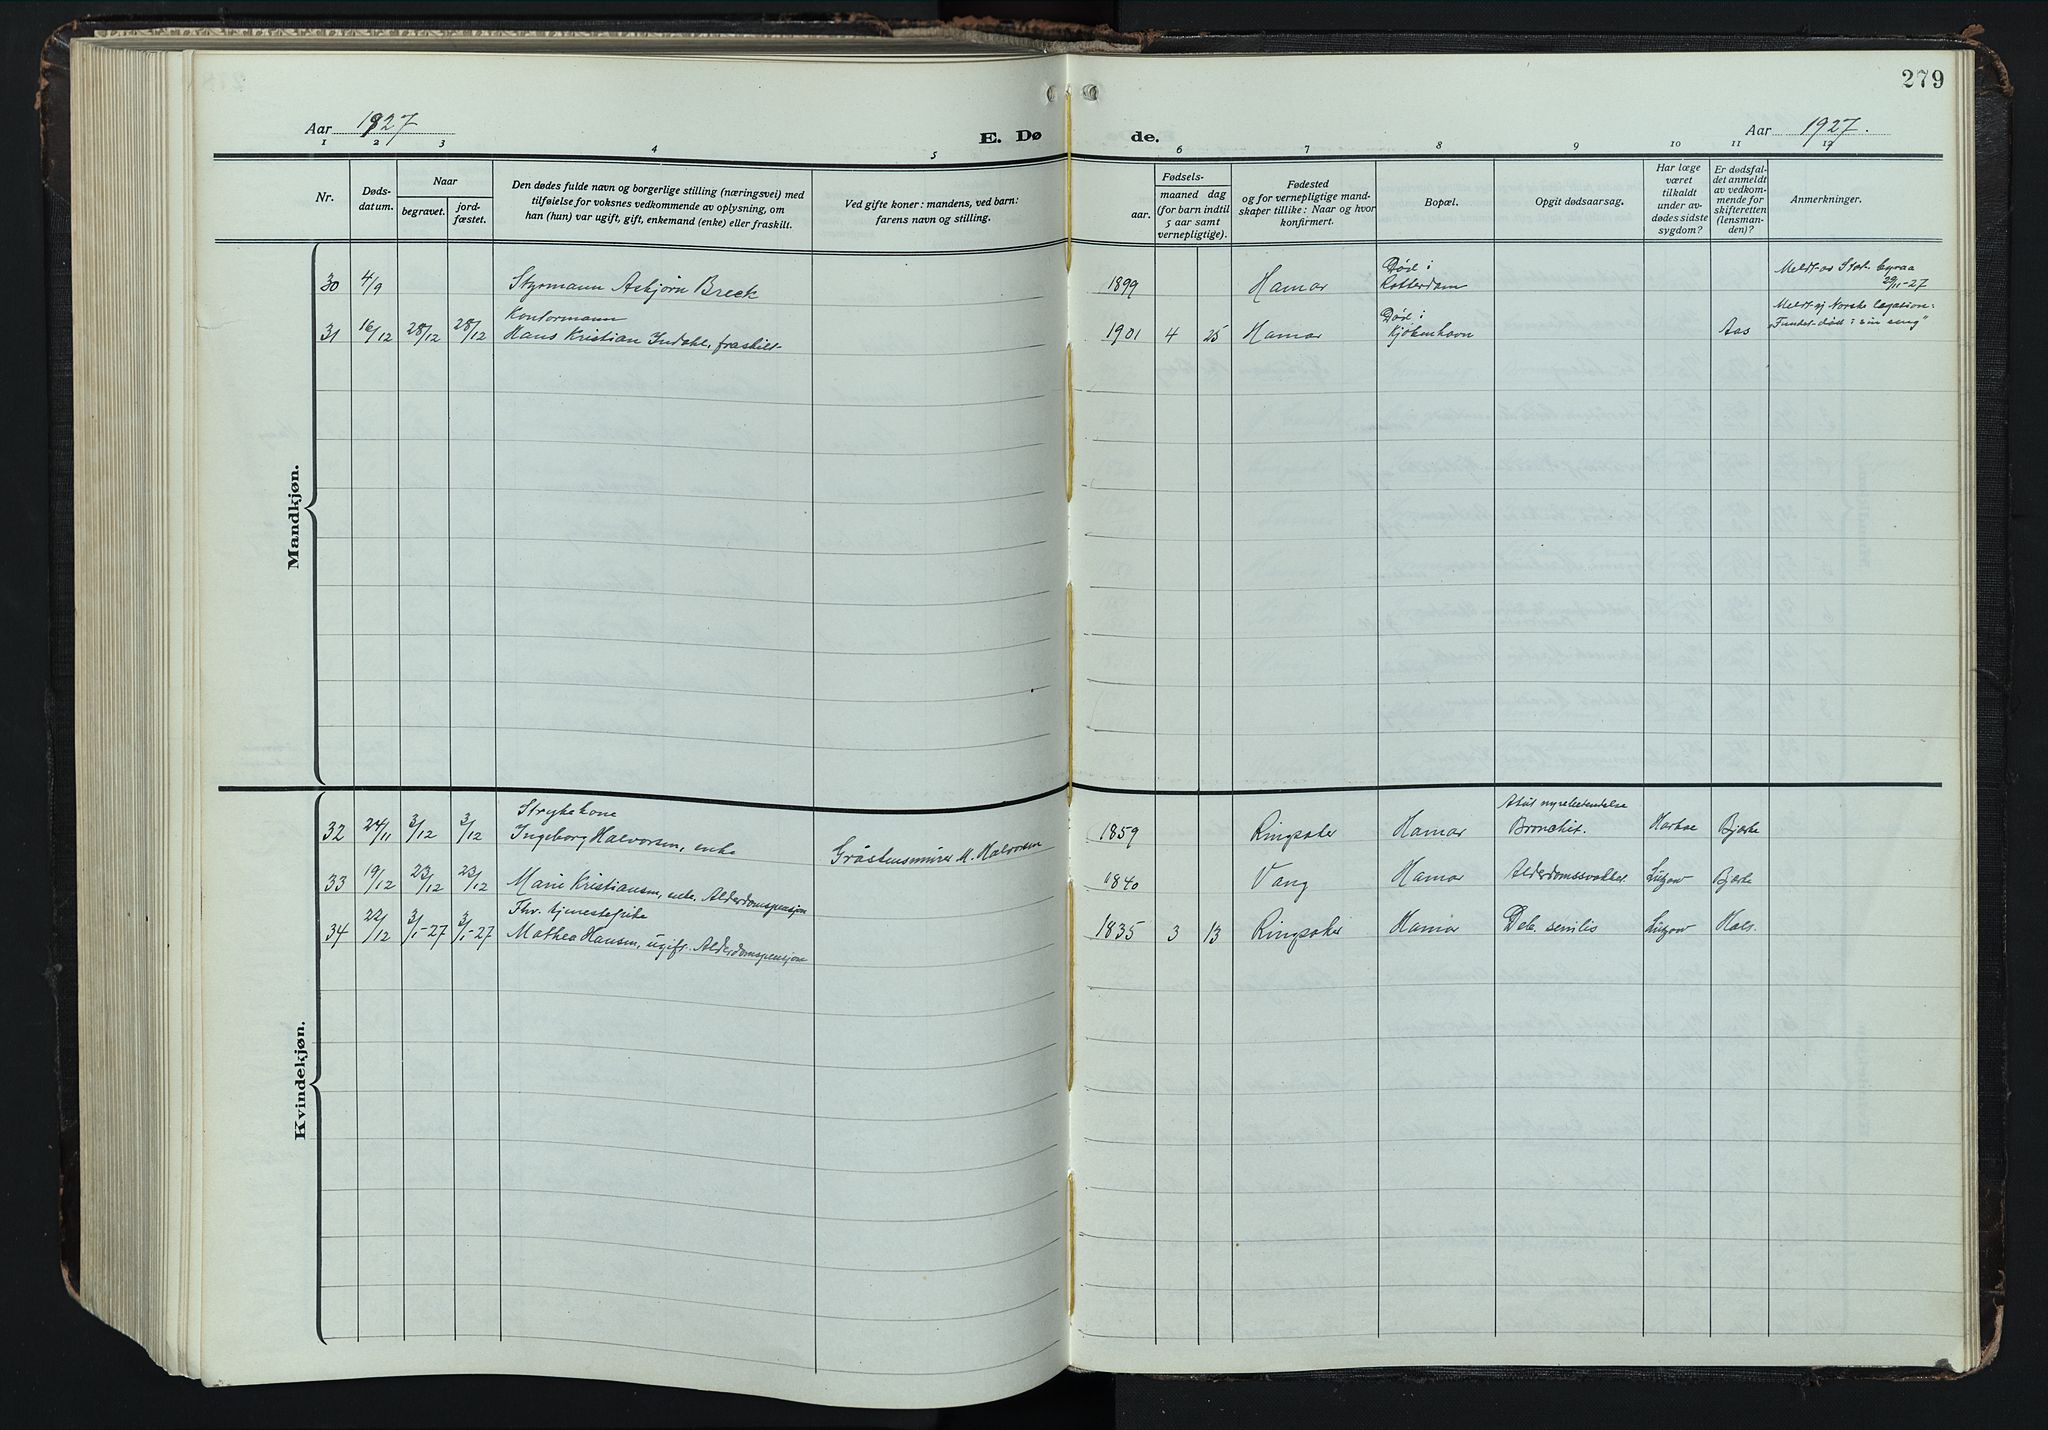 279
Aar 1927
E. Dø de.
Aar 1927.
1 2 3 4 5 6 7 8 9 10 11 12
Nr.
Døds-
datum.
Naar
begravet.
jord-
fæstet.
Den dødes fulde navn og borgerlige stilling (næringsvei) med
tilføielse for voksnes vedkommende av oplysning, om
han (hun) var ugift, gift, enkemand (enke) eller fraskilt.
Ved gifte koner: mandens, ved barn:
farens navn og stilling.
Fødsels-
aar.
maaned dag
(for barn indtil
5 aar samt
vernepligtige).
Fødested
og for vernepligtige mand-
skaper tillike: Naar og hvor
konfirmert.
Bopæl.
Opgit dødsaarsag.
Har læge
været
tilkaldt
under av-
dødes sidste
sygdom?
Er dødsfal-
det anmeldt
av vedkom-
mende for
skifteretten
(lensman-
den)?
Anmerkninger.
Mandkjøn.
30 4/9 Styrmann Asbjørn Breek 1899 Hamar Død i Rotterdam Meldt av Stat. byraa 29/11-27
Kontormann
31 16/12 28/12 28/12 Hans Kristian Indahl, fraskilt 1901 4 25 Hamar Død i Kjøbenhavn Aas Meldt af Norske legation: „Fundet død i sin seng"
Kvindekjøn.
Strykekone
32 24/11 3/12 3/12 Ingeborg Halvorsen, enke Gråstensmurer M. Halvorsen 1859 Ringsaker Hamar Akut nyrebetendelse Bronchit. Harboe Bjerke
33 19/12 23/12 23/12 Marie Kristiansen, enke. Alderdomspensjon 1840 Vang Hamar Alderdomssvakhet Lützow Bjerke
Fhv. tjenestepike
34 22/12 3/1-27 3/1-27 Mathea Hansen, ugift. Alderdomspensjon 1835 3 13 Ringsaker Hamar Deb. senilis Lützow Hals.